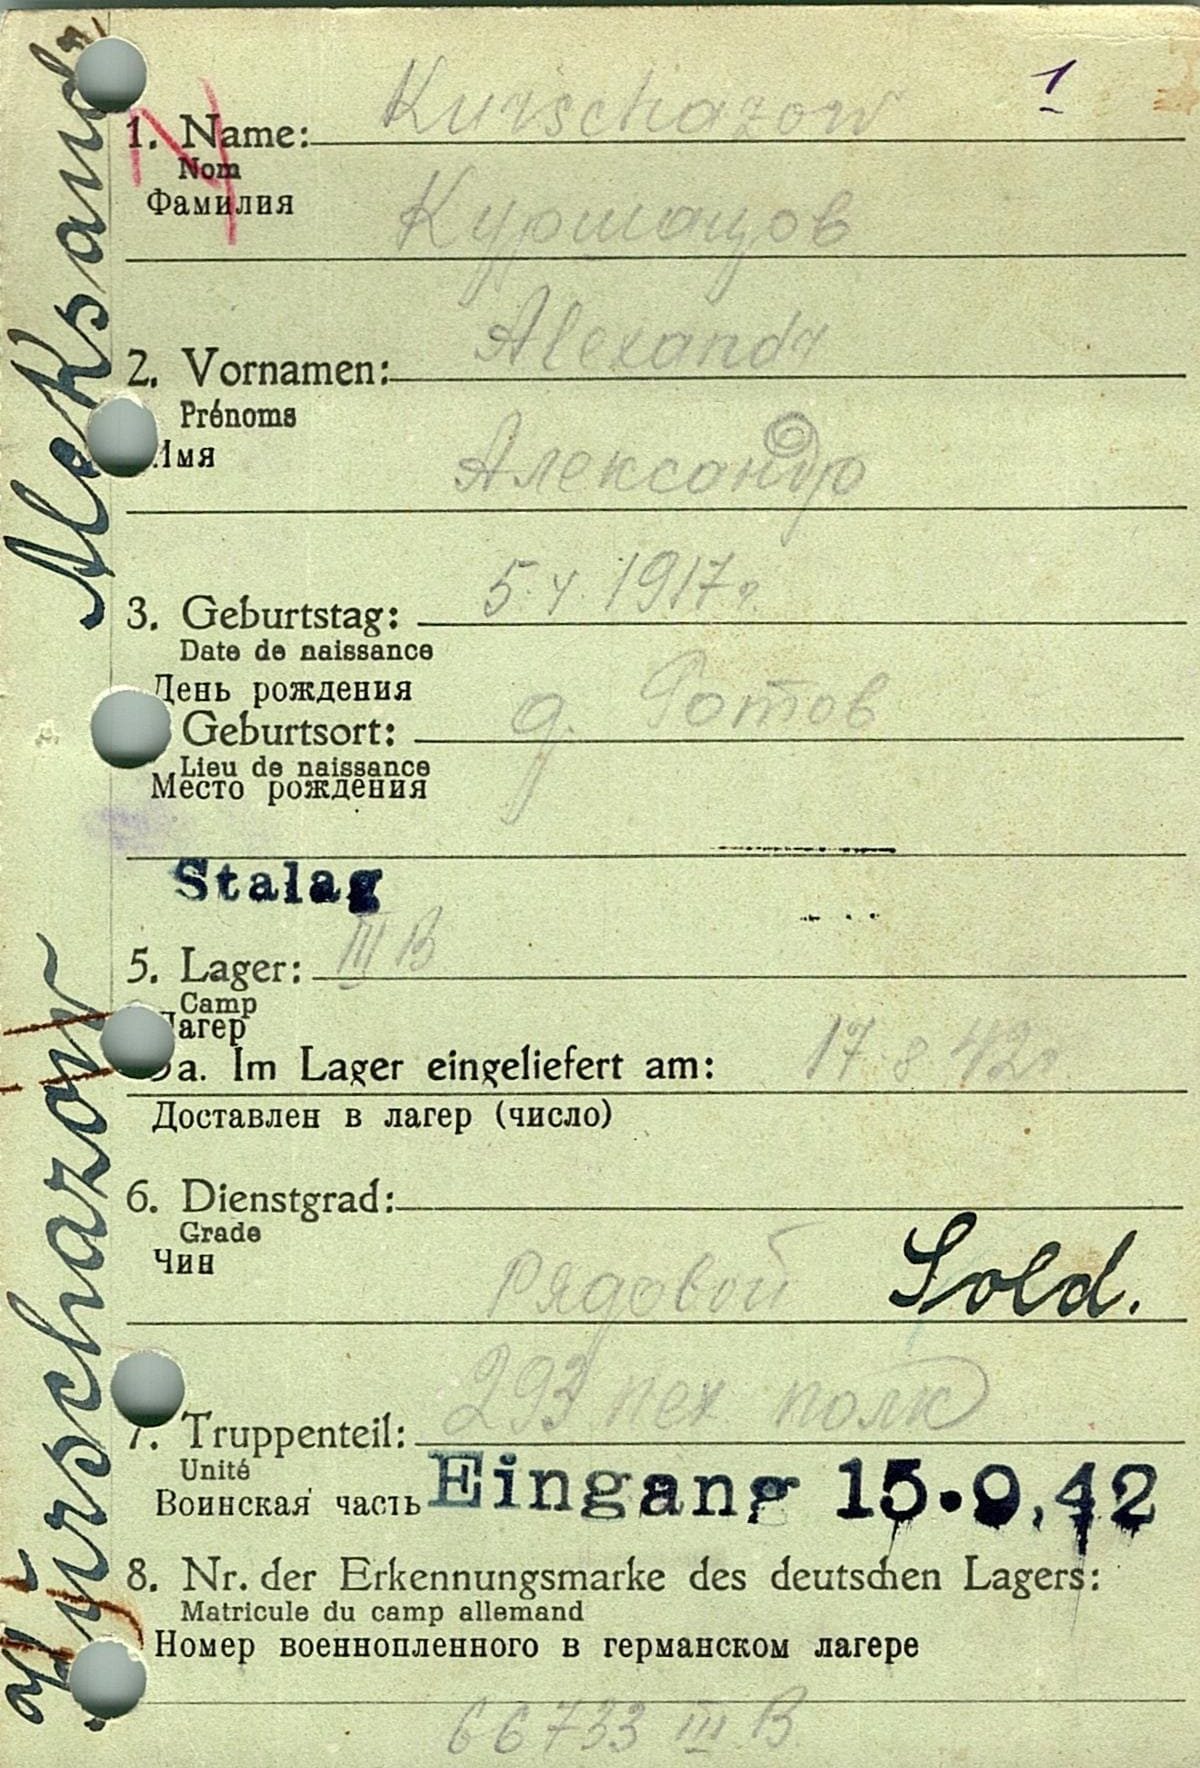 1
1. Name: Kurschazow
Nom
Фамилия
Куршацов
Alexandr
2. Vornamen:
Prénoms
Имя
Александр
3. Geburtstag: 5.4.1917 г.
Date de naissance
День рождения
Geburtsort: д. Ротов
Lieu de naissance
Место рождения
Stalag
5. Lager: III B
Camp
Лагер
5a. Im Lager eingeliefert am: 17.8.42 г
Доставлен в лагер (число)
6. Dienstgrad:
Grade
Чин
рядовой Sold.
7. Truppenteil: 293 пех полк
Unité
Воинская часть Eingang 15.9.42
8. Nr. der Erkennungsmarke des deutschen Lagers:
Matricule du camp allemand
Номер военнопленного в германском лагере
66733 III B
Kurschazow Aleksandr